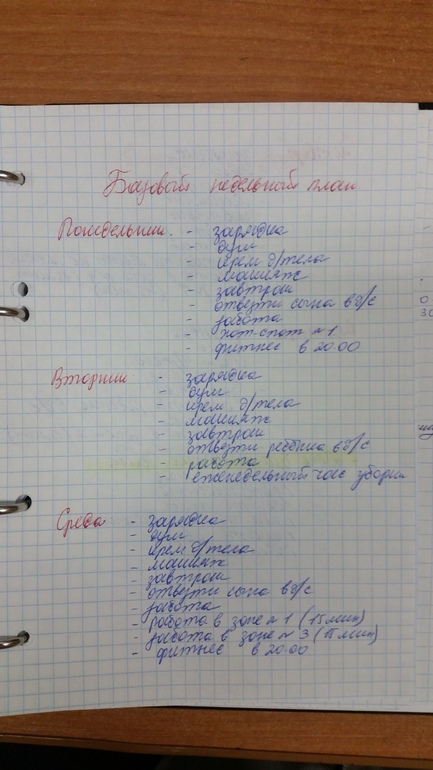 Базовый недельный план
Понедельник - зарядка
- душ
- крем д/тела
- макияж
- завтрак
- отвезти сына в д/с
- работа
- хот-спот №1
- фитнес в 20.00
Вторник - зарядка
- душ
- крем д/тела
- макияж
- завтрак
- отвезти ребёнка в д/с
- работа
- еженедельный час уборки
Среда - зарядка
- душ
- крем д/тела
- макияж
- завтрак
- отвезти сына в д/с
- работа
- работа в зоне №1 (15 мин)
- работа в зоне №3 (15 мин)
- фитнес в 20.00